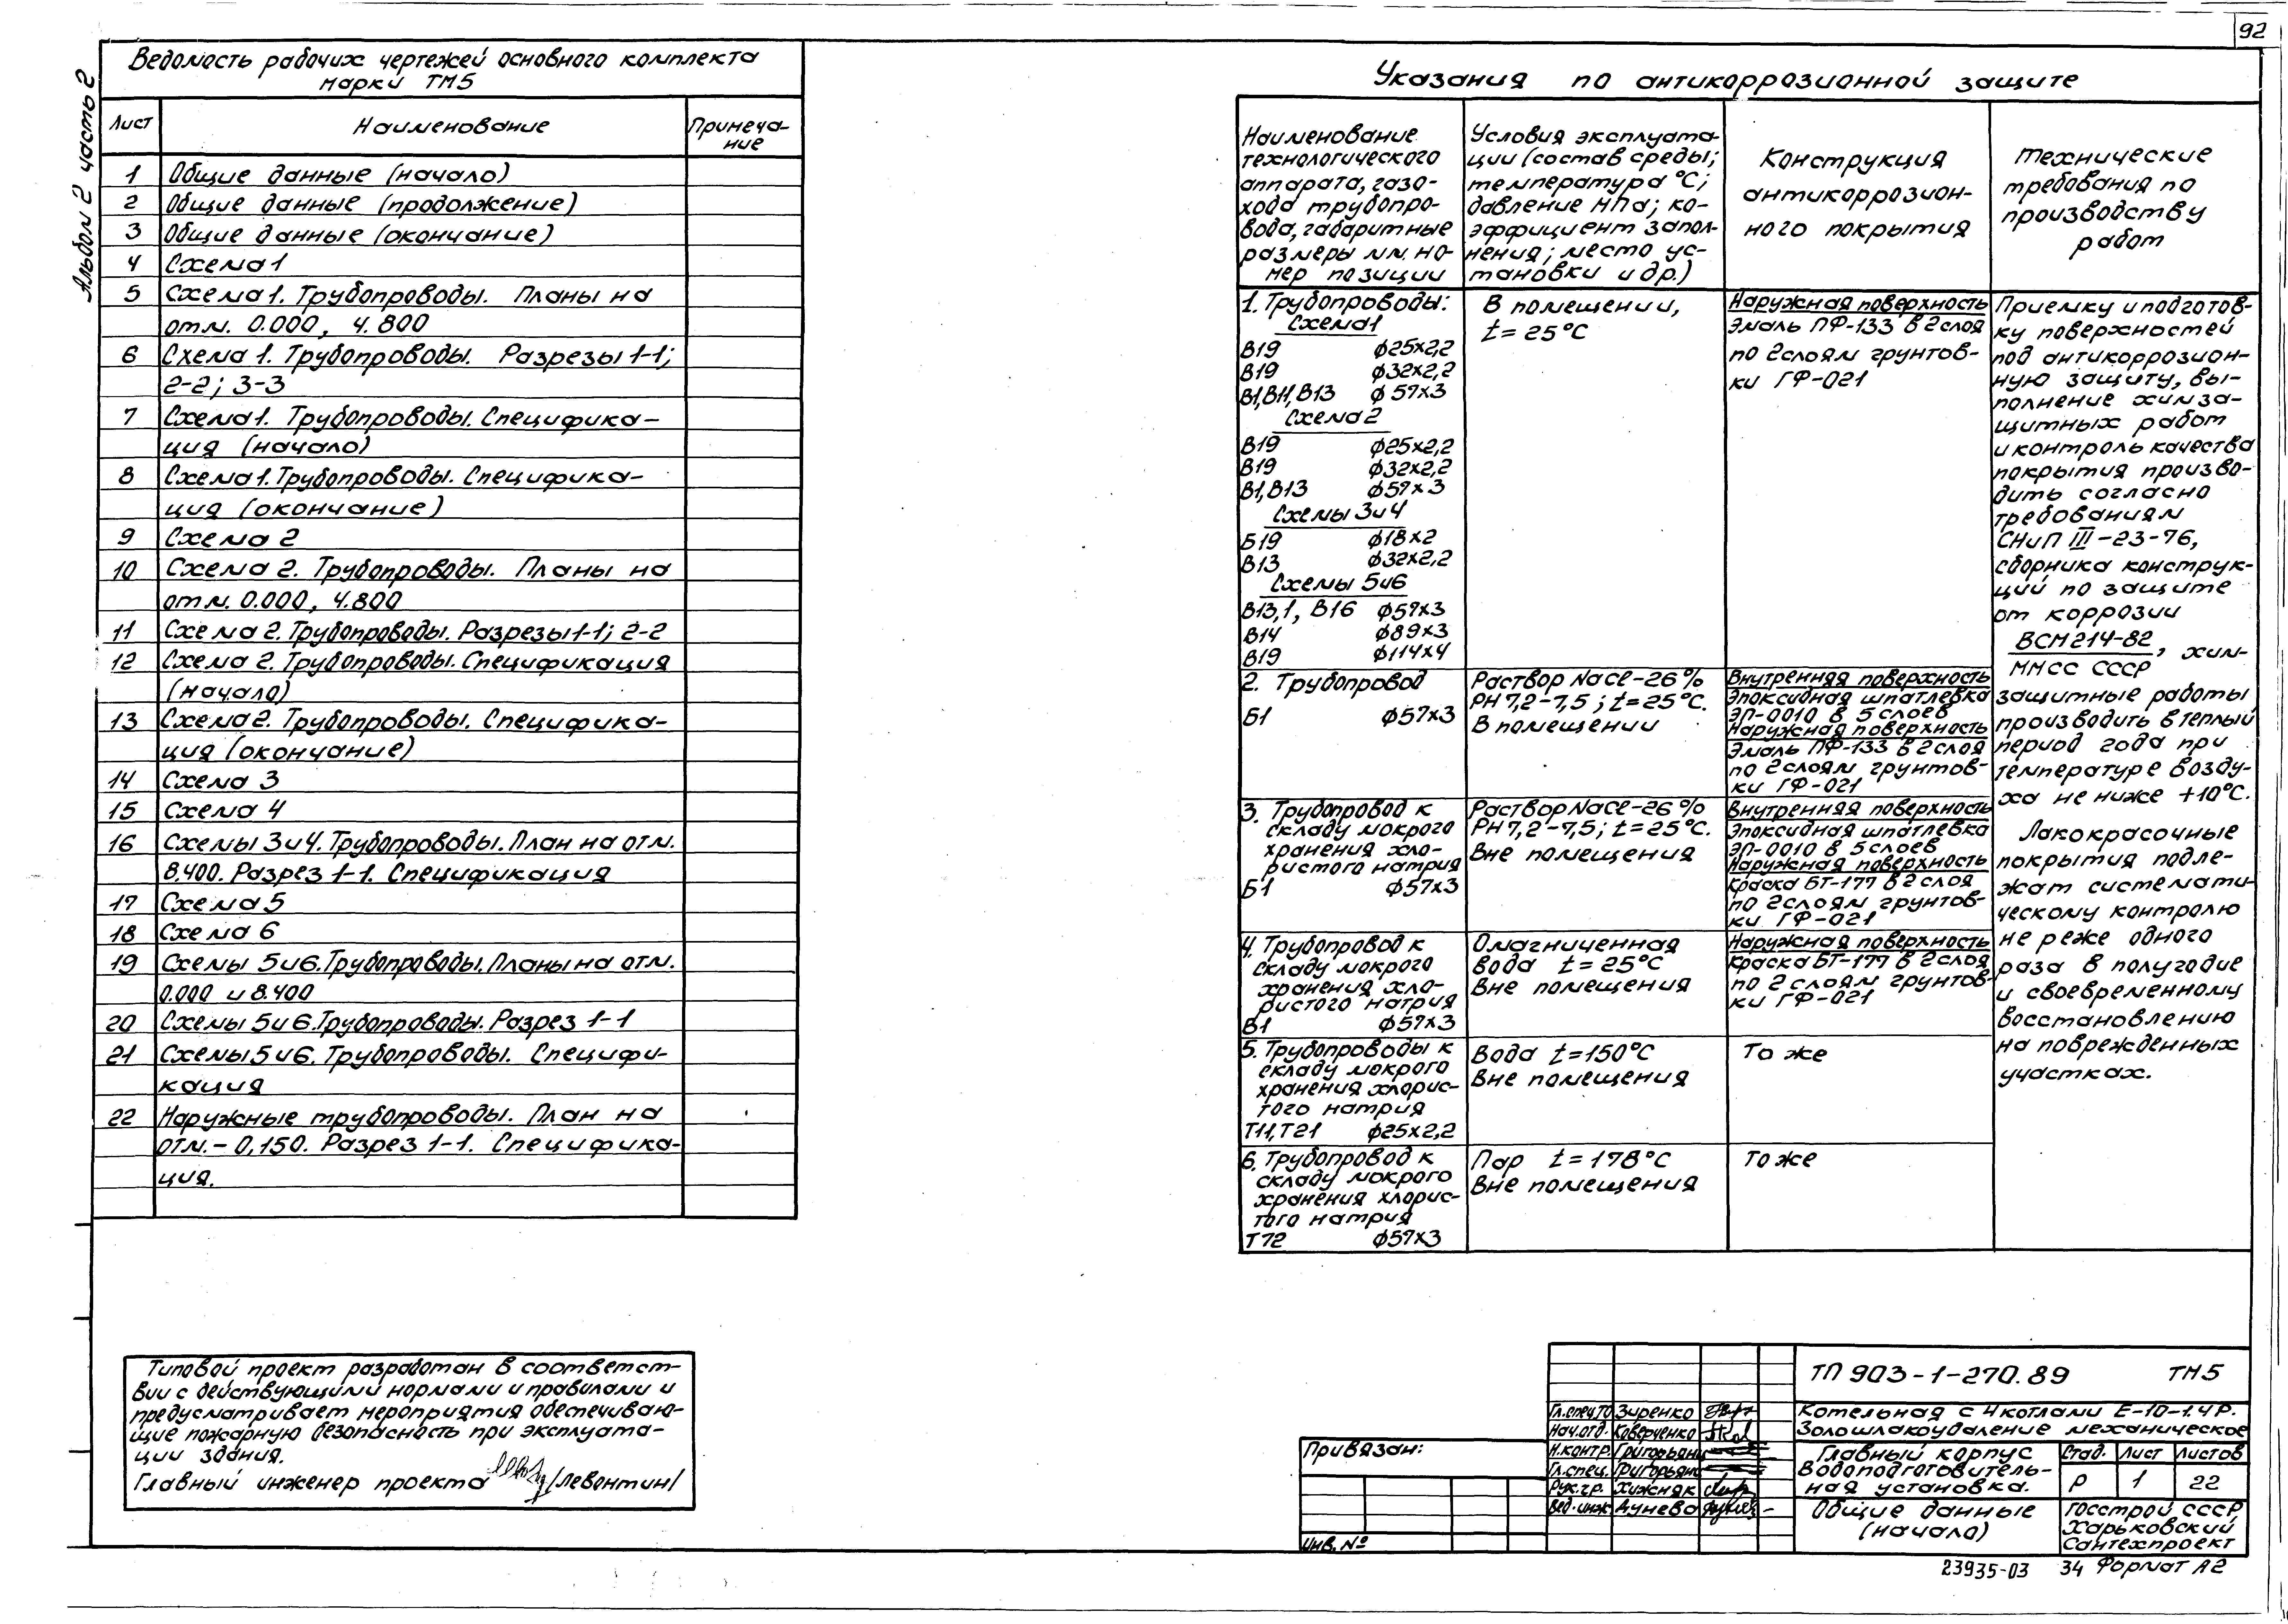 92
Альбом 2 часть 2
Ведомость рабочих чертежей основного комплекта
марки ТМ5
Лист Наименование Примеча-
ние
1 Общие данные (начало)
2 Общие данные (продолжение)
3 Общие данные (окончание)
4 Схема 1
5 Схема 1. Трубопроводы. Планы на
отм. 0.000, 4.800
6 Схема 1. Трубопроводы. Разрезы 1-1;
2-2; 3-3
7 Схема 1. Трубопроводы. Специфика-
ция (начало)
8 Схема 1. Трубопроводы. Специфика-
ция (окончание)
9 Схема 2
10 Схема 2. Трубопроводы. Планы на
отм. 0.000, 4.800
11 Схема 2. Трубопроводы. Разрезы 1-1; 2-2
12 Схема 2. Трубопроводы. Спецификация
(начало)
13 Схема 2. Трубопроводы. Специфика-
ция (окончание)
14 Схема 3
15 Схема 4
16 Схемы 3 и 4. Трубопроводы. План на отм.
8.400. Разрез 1-1. Спецификация
17 Схема 5
18 Схема 6
19 Схемы 5 и 6. Трубопроводы. Планы на отм.
0.000 и 8.400
20 Схемы 5 и 6. Трубопроводы. Разрез 1-1
21 Схемы 5 и 6. Трубопроводы. Специфи-
кация
22 Наружные трубопроводы. План на
отм. - 0,150. Разрез 1-1. Специфика-
ция.
Типовой проект разработан в соответст-
вии с действующими нормами и правилами и
предусматривает мероприятия обеспечиваю-
щие пожарную безопасность при эксплуата-
ции здания.
Главный инженер проекта /Левонтин/
Указания по антикоррозионной защите
Наименование
технологического
аппарата, газо-
хода трубопро-
вода, габаритные
размеры мм. но-
мер позиции
Условия эксплуата-
ции (состав среды;
температура °С;
давление МПа; ко-
эффициент запол-
нения; место ус-
тановки и др.)
Конструкция
антикоррозион-
ного покрытия
Технические
требования по
производству
работ
1. Трубопроводы:
Схема 1
В19 ф25х2,2
В19 ф32х2,2
В1, В11, В13 ф57х3
Схема 2
В19 ф25х2,2
В19 ф32х2,2
В1, В13 ф57х3
Схемы 3 и 4
Б19 ф18х2
В13 ф32х2,2
Схемы 5 и 6
В13,1, В16 ф57х3
В14 ф89х3
В19 ф114х4
В помещении,
t = 25°С
Наружная поверхность
Эмаль ПФ-133 в 2 слоя
по 2 слоям грунтов-
ки ГФ-021
2. Трубопровод
Б1 ф57х3
Раствор NaCl-26%
РН 7,2-7,5; t=25°С.
В помещении
Внутренняя поверхность
Эпоксидная шпатлевка
ЭП-0010 в 5 слоев
Наружная поверхность
Эмаль ПФ-133 в 2 слоя
по 2 слоям грунтов-
ки ГФ-021
3. Трубопровод к
складу мокрого
хранения хло-
ристого натрия
Б1 ф57х3
Раствор NaCl-26%
РН 7,2-7,5; t=25°С.
Вне помещения
Внутренняя поверхность
Эпоксидная шпатлевка
ЭП-0010 в 5 слоев
Наружная поверхность
Краска БТ-177 в 2 слоя
по 2 слоям грунтов-
ки ГФ-021
4. Трубопровод к
складу мокрого
хранения хло-
ристого натрия
В1 ф57х3
Омагниченная
вода t = 25°С
Вне помещения
Наружная поверхность
Краска БТ-177 в 2 слоя
по 2 слоям грунтов-
ки ГФ-021
5. Трубопроводы к
складу мокрого
хранения хлорис-
того натрия
Т11, Т21 ф25х2,2
Вода t=150°С
Вне помещения
То же
6. Трубопровод к
складу мокрого
хранения хлорис-
того натрия
Т72 ф57х3
Пар t=178°С
Вне помещения
То же
Приемку и подготов-
ку поверхностей
под антикоррозион-
ную защиту, вы-
полнение химза-
щитных работ
и контроль качества
покрытия произво-
дить согласно
требованиям
СНиП III-23-76,
сборника конструк-
ций по защите
от коррозии
ВСМ 214-82, хим-
ММСС СССР
защитные работы
производить в теплый
период года при
температуре возду-
ха не ниже +10°С.
Лакокрасочные
покрытия подле-
жат системати-
ческому контролю
не реже одного
раза в полугодие
и своевременному
восстановлению
на поврежденных
участках.
Привязан:
Инв. №
Гл.спец.ТО Зиренко
Нач.отд. Коверченко
Н.контр. Григорьянц
Гл.спец. Григорьянц
Рук.гр. Хижняк
Вед.инж Дунева
ТП 903-1-270.89 ТМ5
Котельная с 4 котлами Е-10-1.4Р.
Золошлакоудаление механическое
Главный корпус
Водоподготовитель-
ная установка.
Стад. Лист Листов
Р 1 22
Общие данные
(начало)
Госстрой СССР
Харьковский
Сантехпроект
23935-03 34 Формат А2